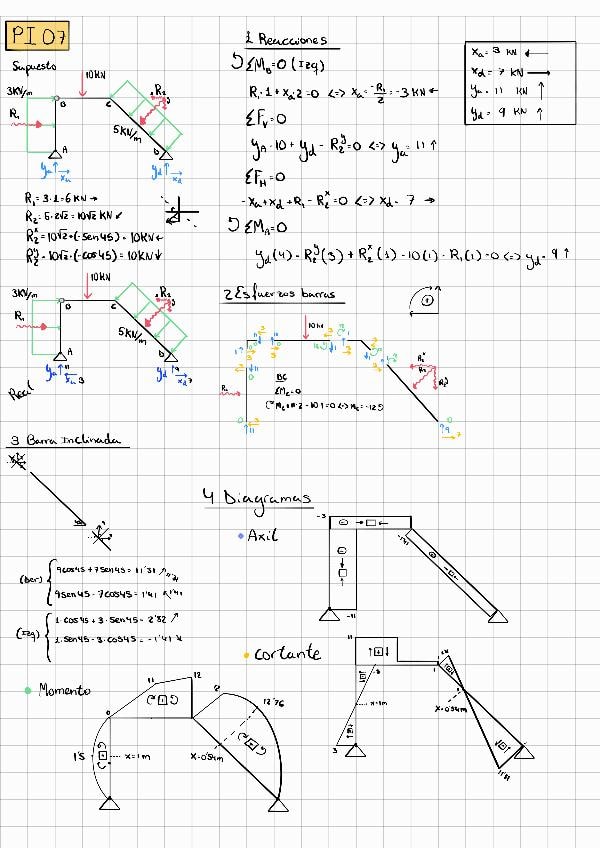 PI 07
Supuesto
3KN/m
10KN
R₁
R₂
B
C
5KN/m
A
D
ya
xa
yd
xd
R₁= 3·1=6 KN →
R₂= 5·2√2 = 10√2 KN ↙
R₂ˣ=10√2·(-sen45) = 10KN←
R₂ʸ= 10√2·(-cos45) = 10KN↓
1 Reacciones
ΣM_B=0 (Izq)
R₁·1 + xa·2=0 <=> xa = -R₁/2 = -3 KN ←
ΣF_V=0
yA - 10 + yd - R₂ʸ=0 <=> ya= 11 ↑
ΣF_H=0
-xa+xd+R₁-R₂ˣ=0 <=> xd= 7 →
ΣM_A=0
yd(4) - R₂ʸ(3) + R₂ˣ(1) -10(1) - R₁(1)=0 <=> yd= 9↑
xa= 3 KN ←
xd= 7 KN →
ya= 11 KN ↑
yd= 9 KN ↑
3KN/m
10KN
R₁
R₂
B
C
5KN/m
A
D
ya
11
xa
3
yd
9
xd
7
Real
2 Esfuerzos barras
10KN
R₁
BC
ΣM_C=0
3 Barra Inclinada
(Der)
9cos45+7sen45= 11'31
9sen45-7cos45= 1'41
(Izq)
1·cos45+3·sen45= 2'82
1·sen45-3·cos45= -1'41
4 Diagramas
• Axil
-3
-11
-1'41
• Cortante
11
3
-3
x=1m
1
x=0'54m
11'31
• Momento
0
11
12
2
12'76
1'5
x=1m
x=0'54m